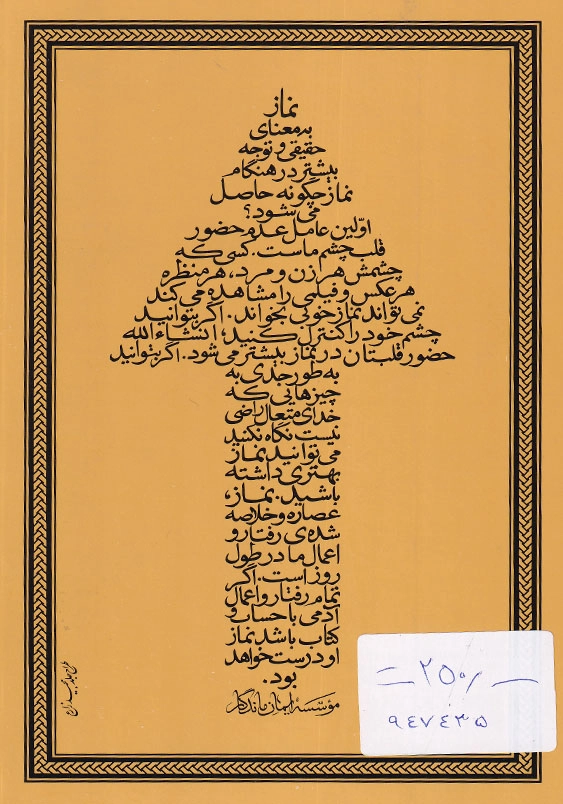 نماز
به معنای
حقیقی و توجه
بیشتر در هنگام
نماز چگونه حاصل
می شود؟
اوّلین عامل عدم حضور
قلب چشم ماست. کسی که
چشمش هر زن و مرد، هر منظره
هر عکس و فیلمی را مشاهده می کند
نمی تواند نماز خوبی بخواند. اگر بتوانید
چشم خود را کنترل کنید، انشاءالله
حضور قلبتان در نماز بیشتر می شود. اگر بتوانید
به طور جدی به
چیزهایی که
خدای متعال راضی
نیست نگاه نکنید
می توانید نماز
بهتری داشته
باشید. نماز،
عصاره و خلاصه
شده ی رفتار و
اعمال ما در طول
روز است. اگر
تمام رفتار و اعمال
آدمی با حساب و
کتاب باشد نماز
او درست خواهد
بود.
مؤسسهٔ ایمان ماندگار
طرح جلد
۲۵۰/
۹۴۷۴۳۵